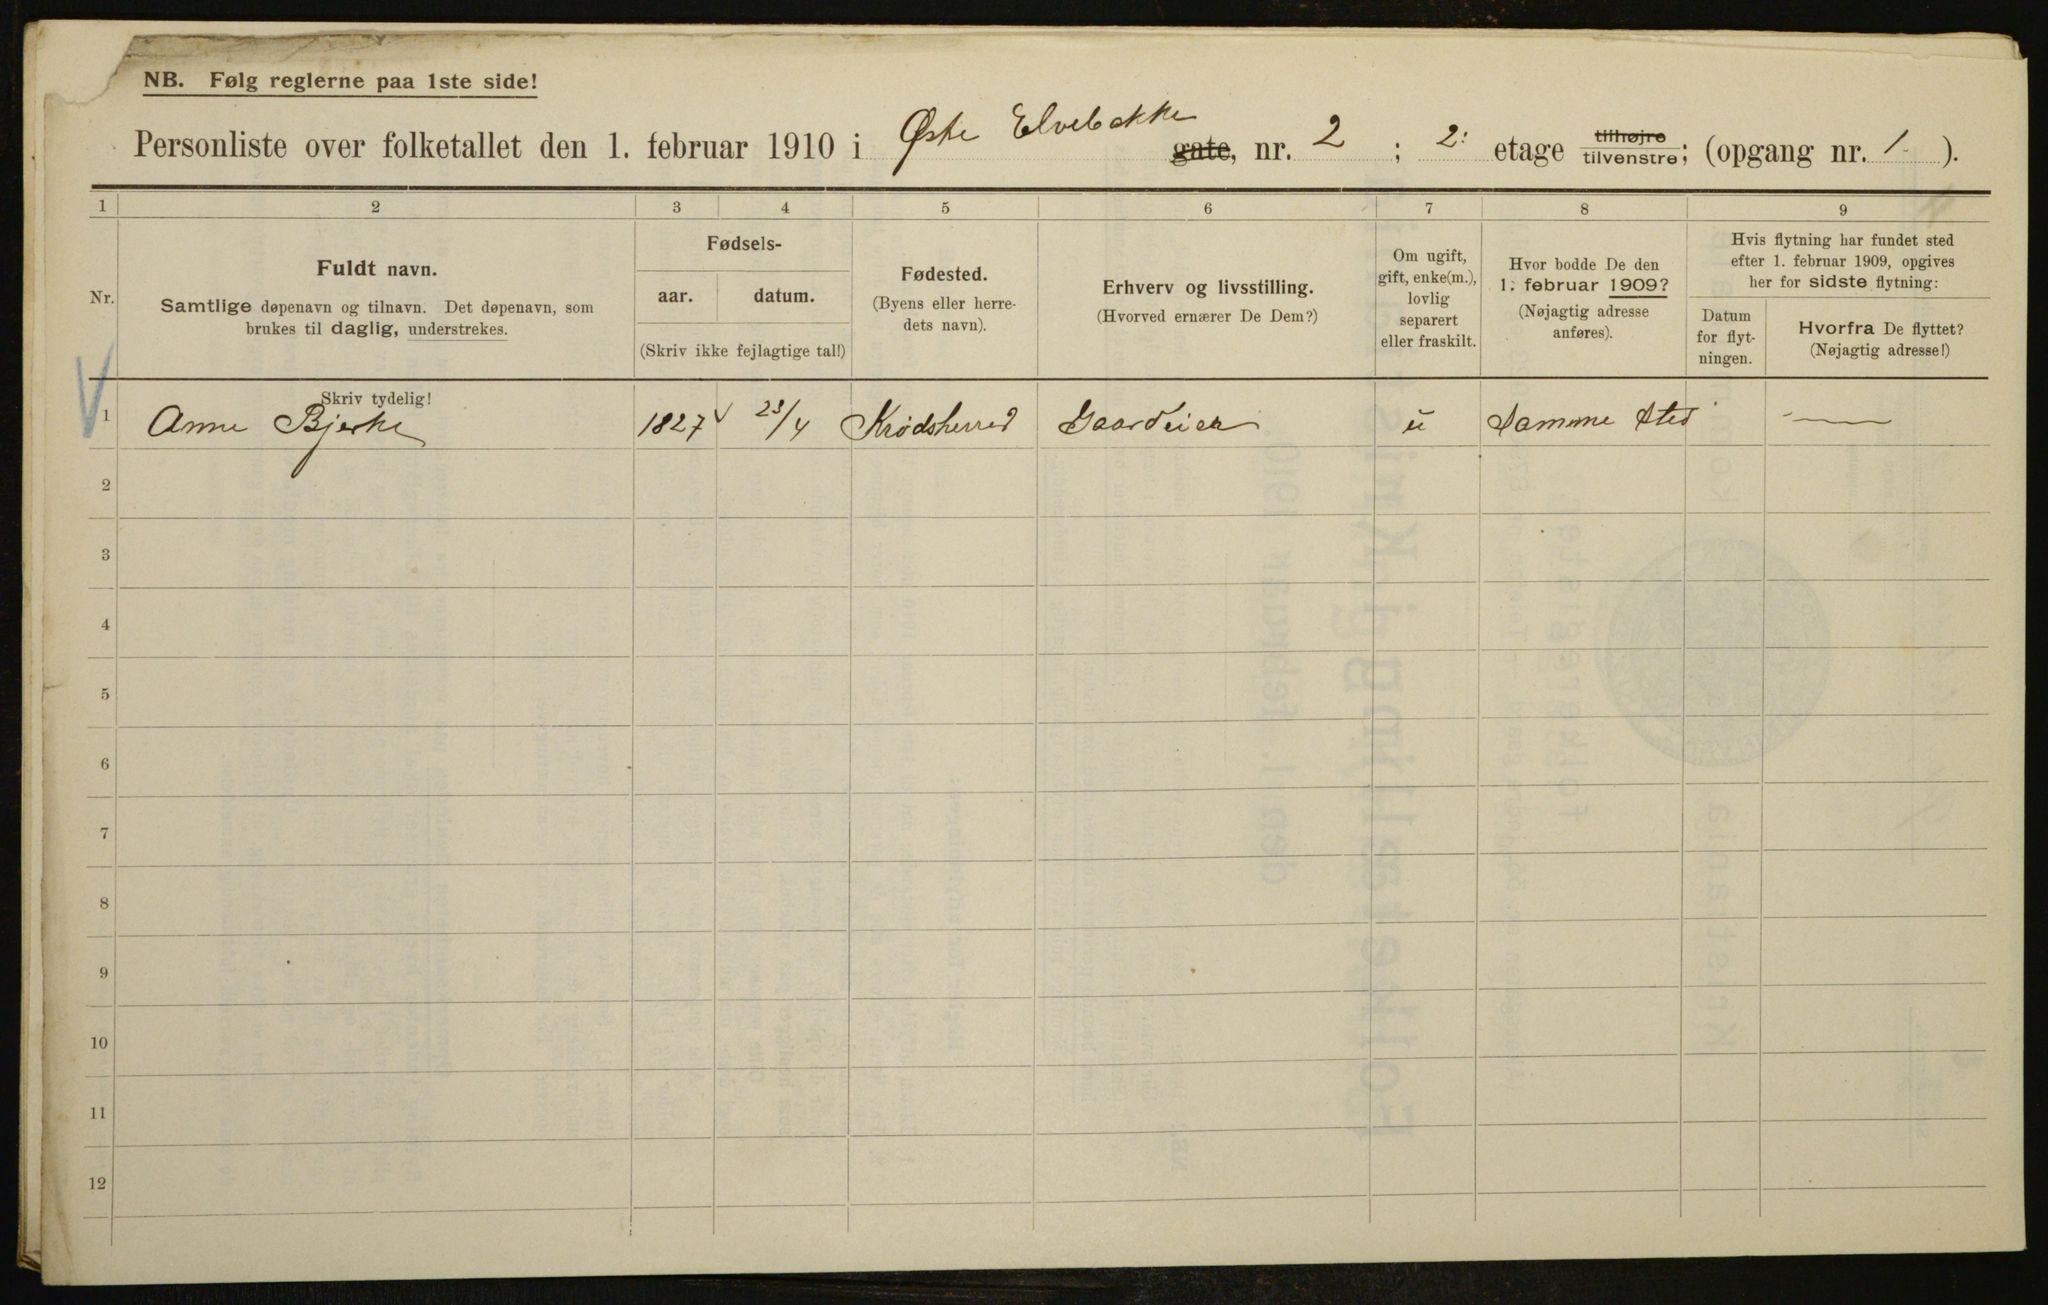 NB. Følg reglerne paa 1ste side!
Personliste over folketallet den 1. februar 1910 i Østre Elvebakke gate, nr. 2 ; 2: etage tilhøjre tilvenstre; (opgang nr. 1 ).
1 2 3 4 5 6 7 8 9
Nr.
Fuldt navn.
Samtlige døpenavn og tilnavn. Det døpenavn, som
brukes til daglig, understrekes.
Skriv tydelig!
Fødsels-
aar. datum.
(Skriv ikke fejlagtige tal!)
Fødested.
(Byens eller herre-
dets navn).
Erhverv og livsstilling.
(Hvorved ernærer De Dem?)
Om ugift,
gift, enke(m.),
lovlig
separert
eller fraskilt.
Hvor bodde De den
1. februar 1909?
(Nøjagtig adresse
anføres).
Hvis flytning har fundet sted
efter 1. februar 1909, opgives
her for sidste flytning:
Datum
for flyt-
ningen.
Hvorfra De flyttet?
(Nøjagtig adresse!)
1 Anne Bjerke 1827 23/4 Krødsherred Gaardeier u Samme Sted —
2
3
4
5
6
7
8
9
10
11
12